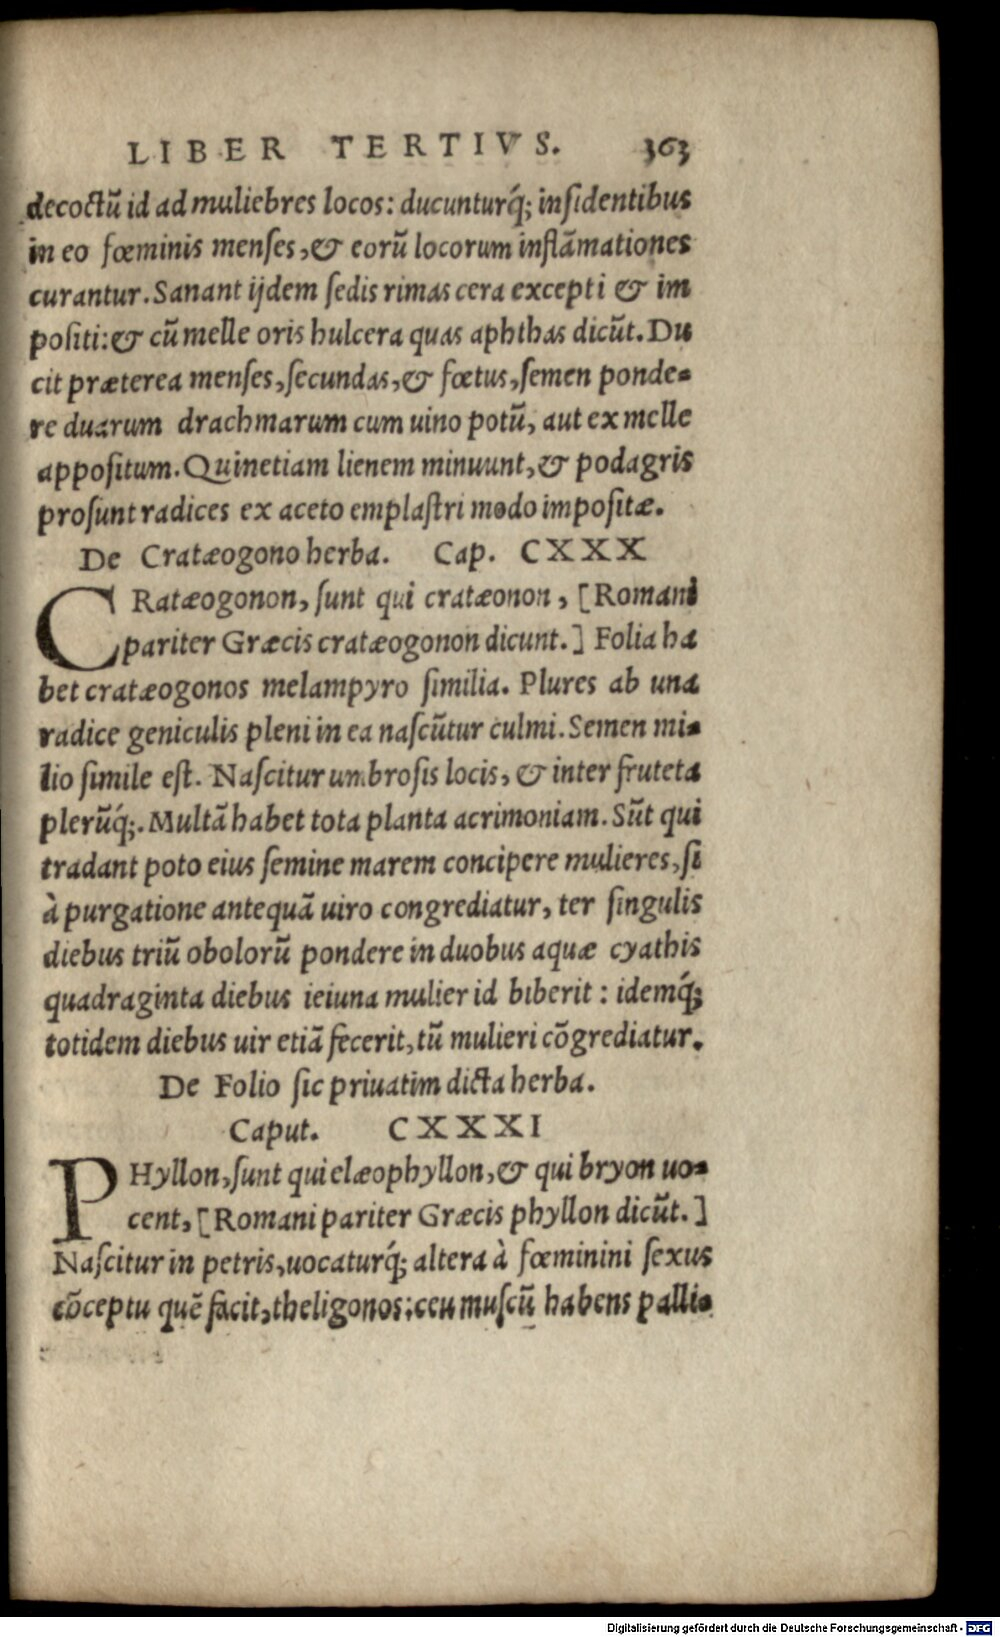 LIBER TERTIVS. 363
decoctũ id ad muliebres locos: ducunturq́; inſidentibus
in eo fœminis menſes, & eorũ locorum inflãmationes
curantur. Sanant ijdem ſedis rimas cera excepti & im
poſiti: & cũ melle oris hulcera quas aphthas dicũt. Du
cit præterea menſes, ſecundas, & fœtus, ſemen ponde-
re duarum drachmarum cum uino potũ, aut ex melle
appoſitum. Quinetiam lienem minuunt, & podagris
proſunt radices ex aceto emplaſtri modo impoſitæ.
De Cratæogono herba. Cap. CXXX
CRatæogonon, ſunt qui cratæonon, [Romani
pariter Græcis cratæogonon dicunt.] Folia ha
bet cratæogonos melampyro ſimilia. Plures ab una
radice geniculis pleni in ea naſcũtur culmi. Semen mi-
lio ſimile eſt. Naſcitur umbroſis locis, & inter fruteta
plerũq́;. Multã habet tota planta acrimoniam. Sũt qui
tradant poto eius ſemine marem concipere mulieres, ſi
à purgatione antequã uiro congrediatur, ter ſingulis
diebus triũ obolorũ pondere in duobus aquæ cyathis
quadraginta diebus ieiuna mulier id biberit: idemq́;
totidem diebus uir etiã fecerit, tũ mulieri cõgrediatur.
De Folio ſic priuatim dicta herba.
Caput. CXXXI
PHyllon, ſunt qui elæophyllon, & qui bryon uo-
cent, [Romani pariter Græcis phyllon dicũt.]
Naſcitur in petris, uocaturq́; altera à fœminini ſexus
cõceptu quẽ facit, theligonos: ceu muſcũ habens palli-
Digitalisierung gefördert durch die Deutsche Forschungsgemeinschaft - DFG